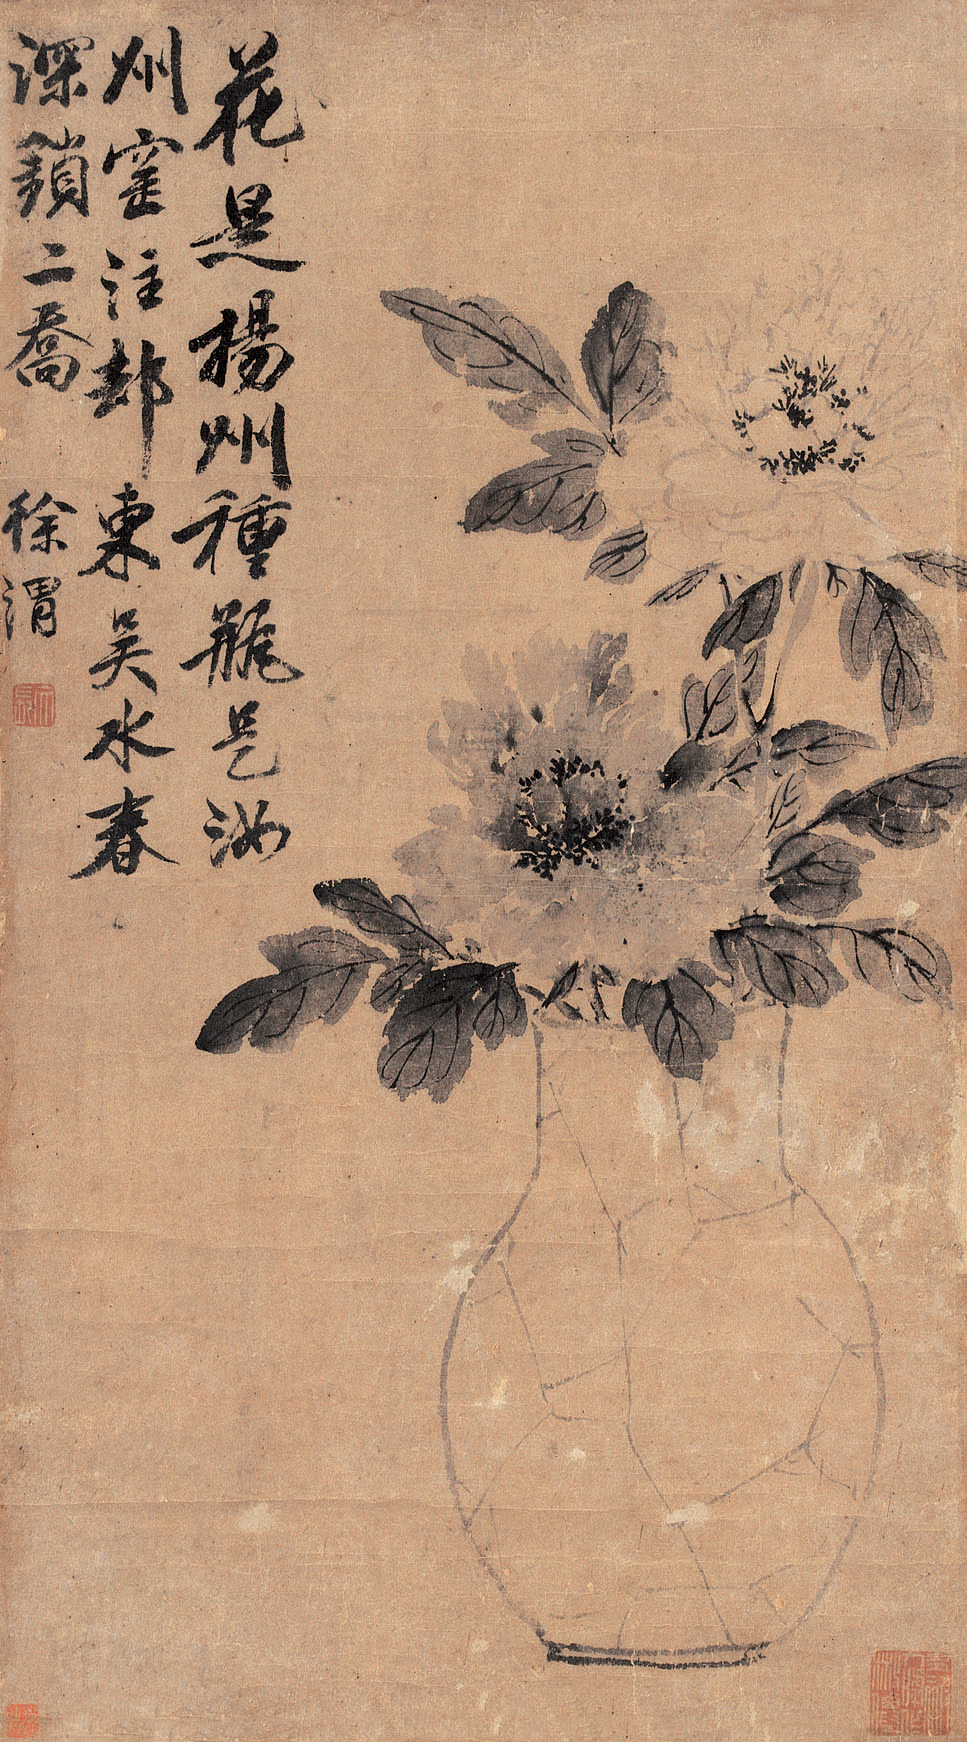 花是揚州種瓶是汝
州窑注却東吴水春
深鎖二喬
徐渭